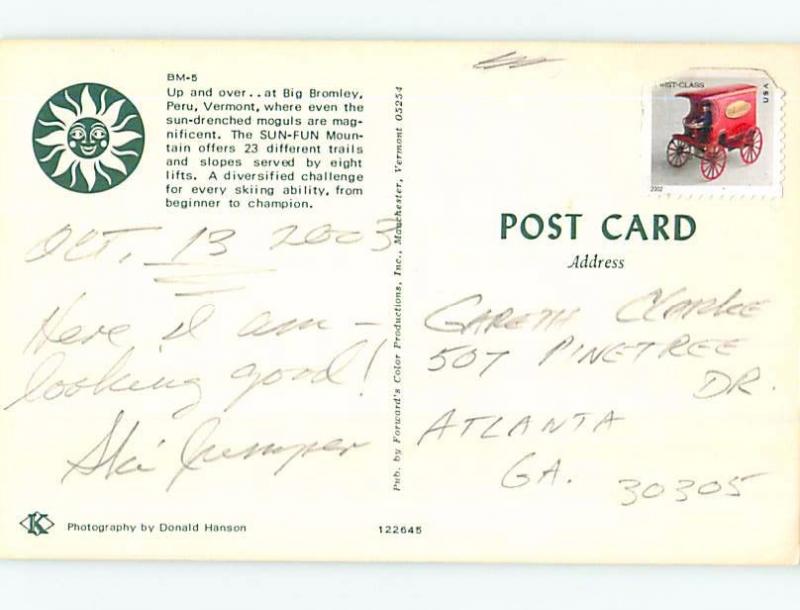 BM-5
Up and over..at Big Bromley,
Peru, Vermont, where even the
sun-drenched moguls are mag-
nificent. The SUN-FUN Moun-
tain offers 23 different trails
and slopes served by eight
lifts. A diversified challenge
for every skiing ability, from
beginner to champion.
OCT. 13 2003
Here I am -
looking good!
Ski Jumper
Photography by Donald Hanson
122645
Pub. by Forward's Color Productions, Inc., Manchester, Vermont 05254
FIRST-CLASS
USA
2002
POST CARD
Address
GARETH CLARKE
507 PINETREE
DR.
ATLANTA
GA. 30305
K